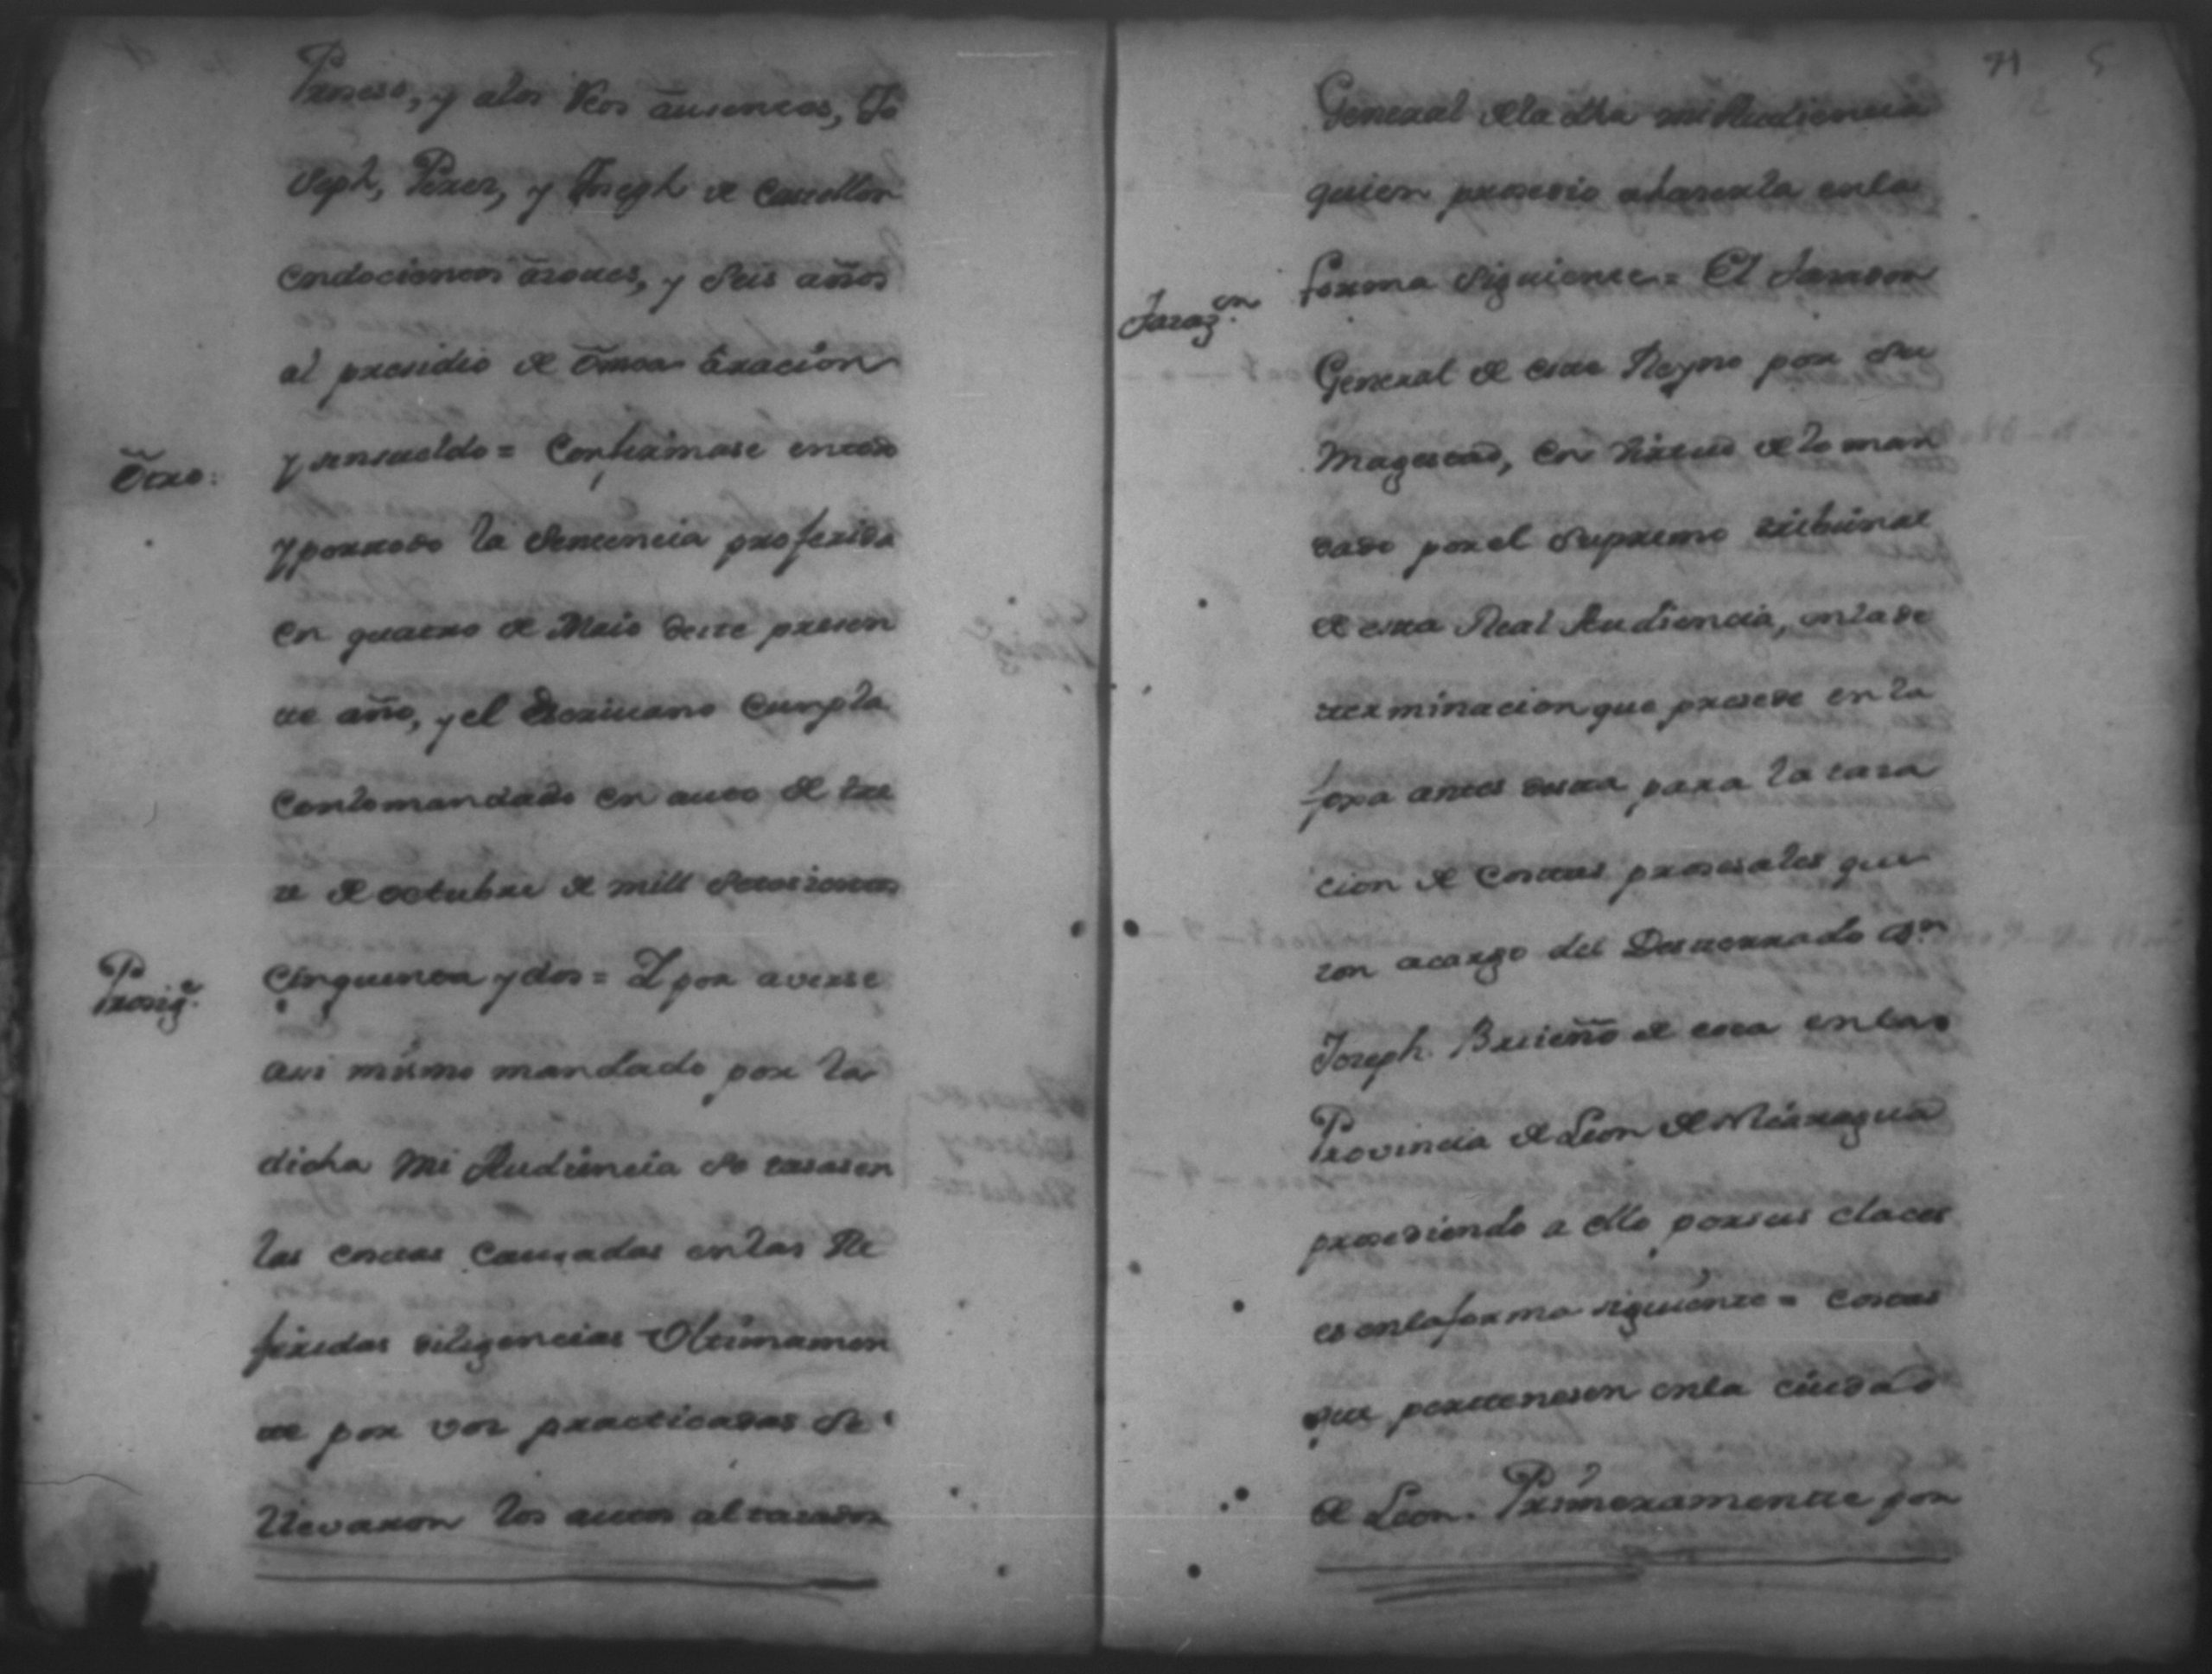 Proceso, y alos Reos aucentes, Jo
seph, Perez, y Joseph de Castellon
Condocientos asotes, y seis años
al presidio de Omoa aracion
Otro:
y sinsueldo = Confirmase entodo
y portodo la Sentencia proferida
en quatro de Maio deste presen
te año, y el Escriuano Cumpla
Conlomandado en auto de tre
ze de octubre de mill Setecientos
Prosigᵉ.
Cinquenta y dos = I por averse
asi mismo mandado por la
dicha mi Audiencia se tasasen
las costas Causadas enlas Re
feridas diligencias Vltimamen
te por vos practicadas se
llevaron los autos altasador
71 5
General dela dha mi Audiencia
quien procedio ahaserla enla
Tasazᵒⁿ
forma Siguiente = El tasador
General de este Reyno por Su
Magestad, en virtud de lo man
dado por el Supremo tribunal
de esta Real Audiencia, enla de
terminacion que presede en la
foxa antes desta para la tasa
cion de Costas prosesales que
son acargo del Desterrado Dⁿ
Joseph Briceño de coca enla
Provincia de Leon de Nicaragua
prosediendo a ello por sus claces
es enlaforma siguiente = Costas
que pertenesen enla ciudad
de Leon. Primeramente por